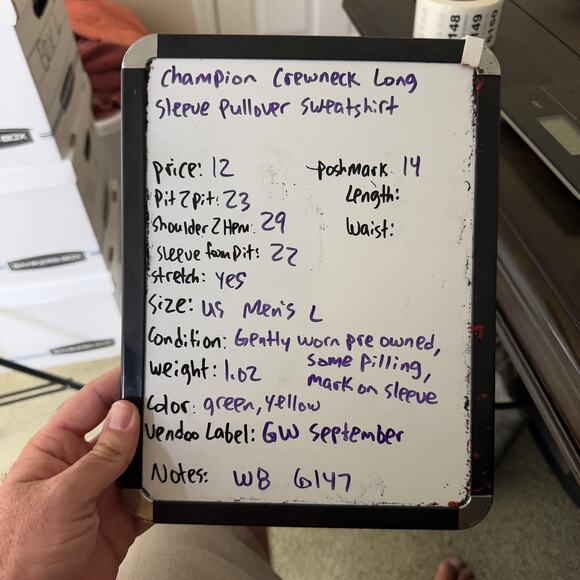 Champion Crewneck Long
Sleeve Pullover Sweatshirt
price: 12
Poshmark 14
Pit2pit: 23
Length:
Shoulder2Hem: 29
Waist:
Sleeve from Pit: 22
stretch: yes
Size: US Men's L
Condition: Gently worn pre owned,
some pilling,
mark on sleeve
weight: 1.02
Color: green, yellow
Vendoo Label: GW September
Notes: WB 6147
148
149
150